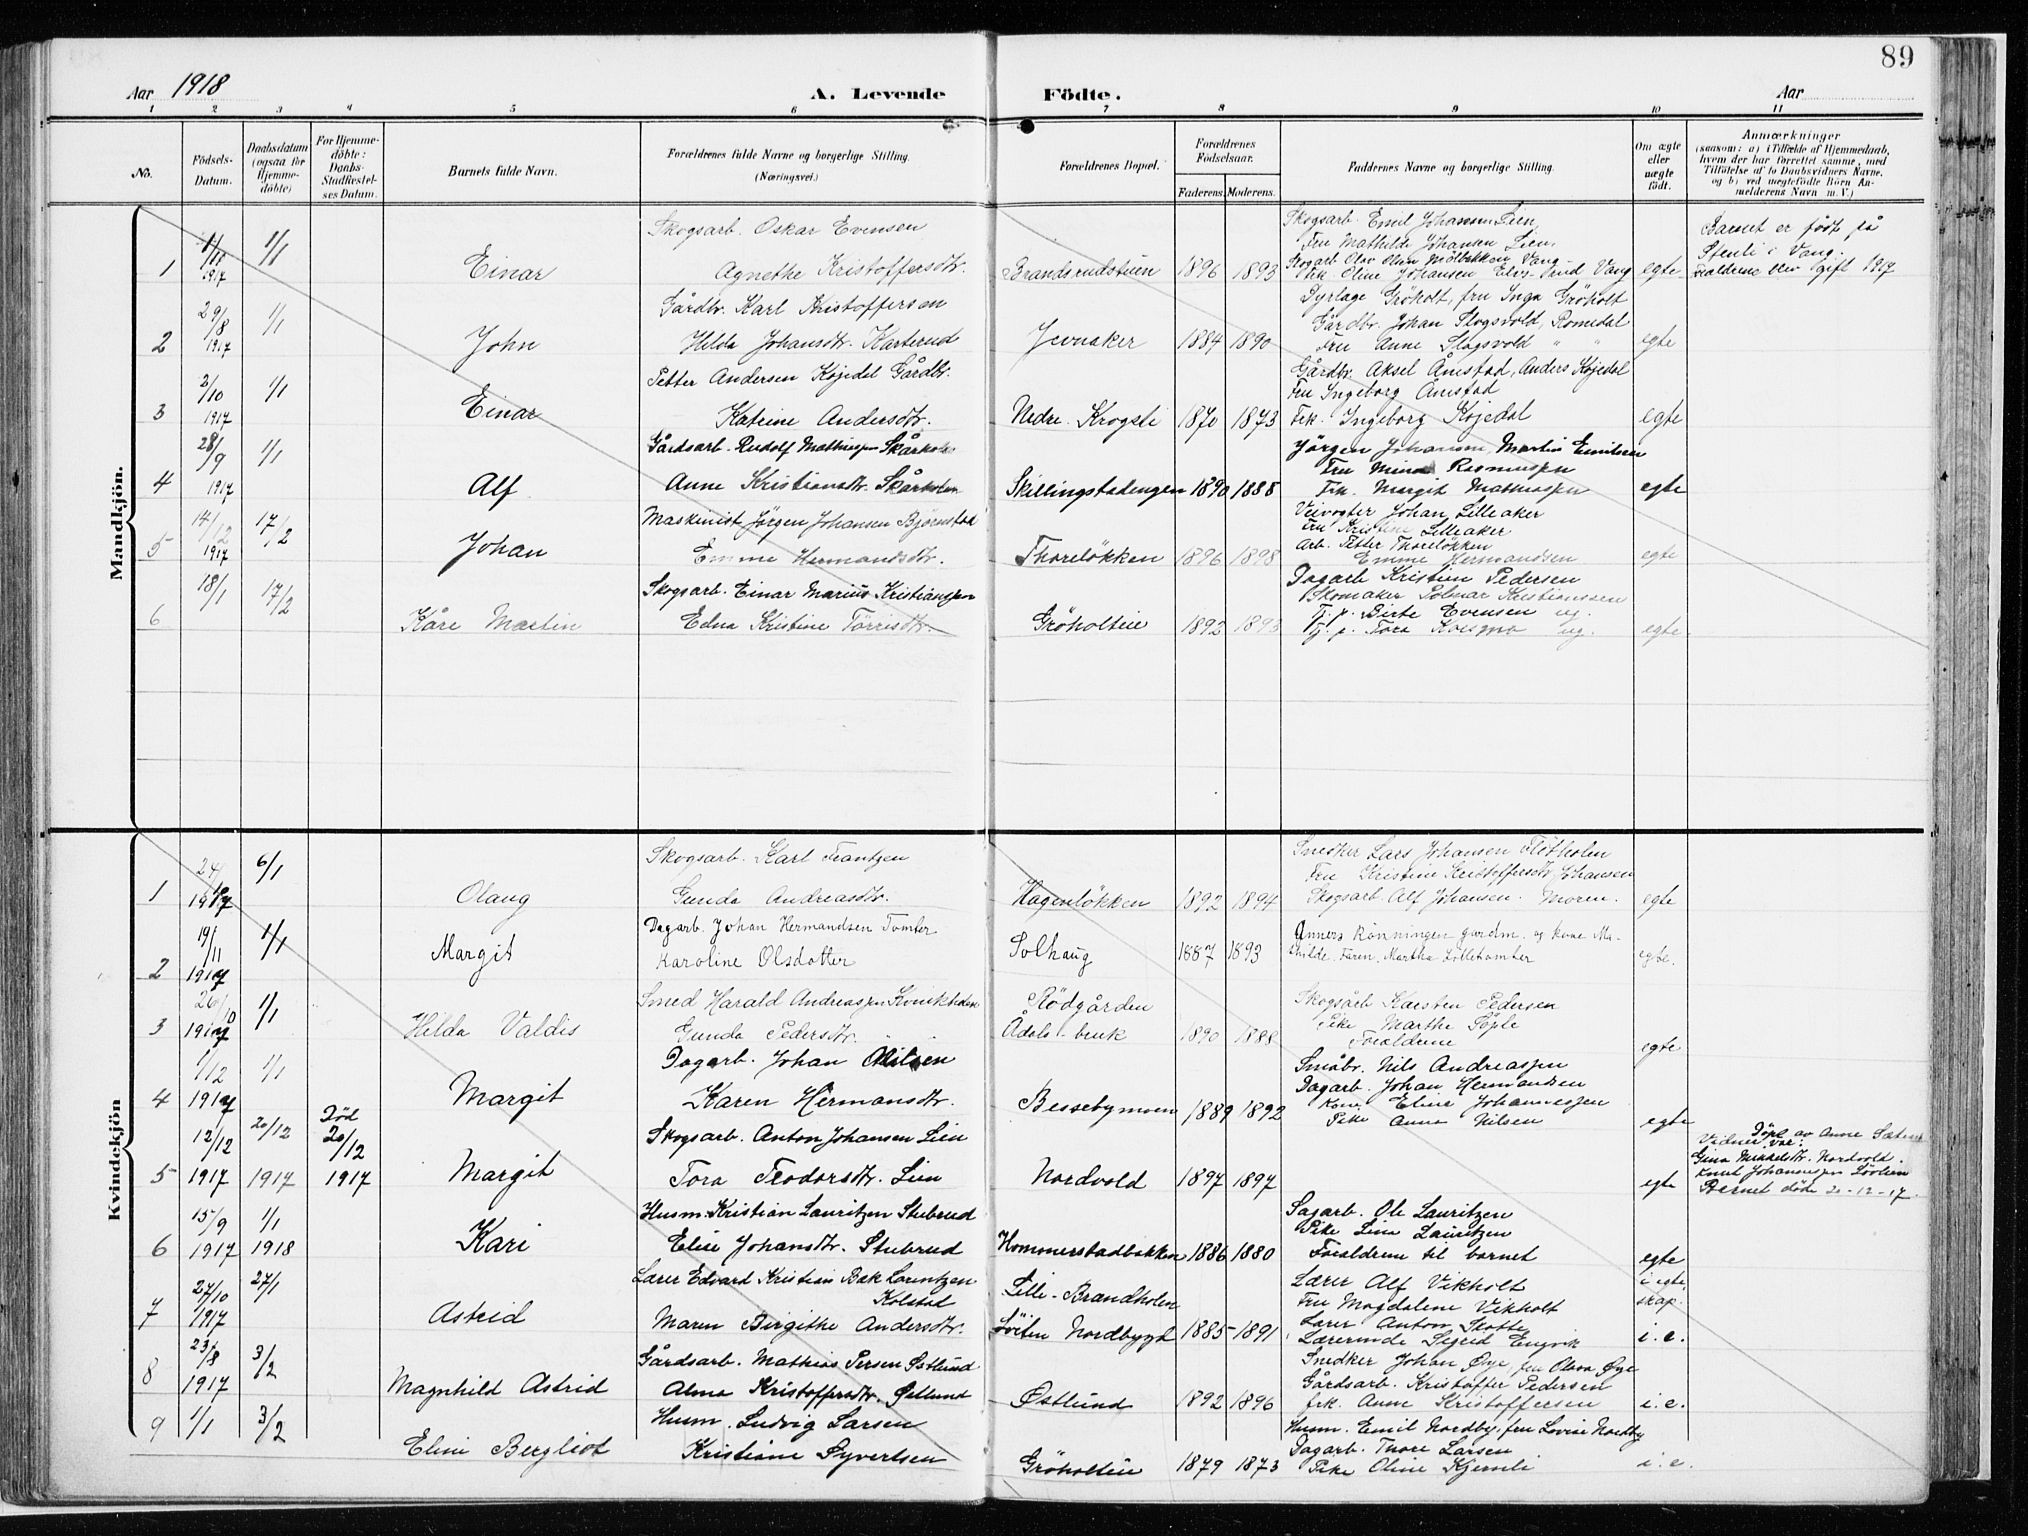 89
Aar 1918
A. Levende Födte.
Aar
1 2 3 4 5 6 7 8 9 10 11
No.
Födsels-Datum.
Daabsdatum (ogsaa for Hjemme-döbte)
For Hjemme-döbte: Daabs-Stadfæstel-ses Datum.
Barnets fulde Navn.
Forældrenes fulde Navne og borgerlige Stilling.
(Næringsvei.)
Forældrenes Bopæl.
Forældrenes Födselsaar.
Faderens. Moderens.
Faddernes Navne og borgerlige Stilling.
Om ægte eller uægte födt.
Anmærkninger
(saasom: a) i Tilfælde af Hjemmedaab, hvem der har forrettet samme, med Tilföielse af to Daabsvidners Navne, og b) ved uægtefödte Börn An-melderens Navn m. V.)
Mandkjön.
1 1/11 1917 1/1 Einar
Skogsarb. Oskar Evensen
Agnethe Kristoffersdtr.
Brandsrudstuen 1896 1893
Skogsarb. Emil Johansen Lien
Fru Mathilde Johansen Lien
Skogarb Olav Olsen Molbakken Vang
Frk. Oline Johansen Vang
egte
Barnet er født på
Stenli i Vang.
Foreldrene blev gift 1917
2 29/8 1917 1/1 John
Gårdbr. Karl Kristoffersen
Hilda Johansdtr. Karterud
Jevnaker 1884 1890
Dyrlæge Gröholt, fru Inga Gröholt
Gårdbr. Johan Slogsvold, Romedal
Fru Anne Slogsvold " "
egte
3 2/10 1917 1/1 Einar
Petter Andersen Kojedal Gårdbr.
Katrine Andersdtr.
Nedre Krogsti 1870 1873
Gårdbr. Aksel Åmstad, Anders Kojedal
Fru Ingeborg Åmstad
Frk. Ingeborg Kojedal
egte
4 28/9 1917 1/1 Alf
Gårdsarb. Rudolf Mathiassen Skårholen
Anne Kristiansdtr. Skårholen
Skillingstadengen 1890 1888
Jörgen Johansen, Martin Emilsen
Fru Mina Rasmussen
Frk. Margit Mathiassen
egte
5 14/12 1917 17/2 Johan
Maskinist Jörgen Johansen Björnstad
Emme Hermansdtr.
Thorelökken 1896 1898
Veivogter Johan Lilleaker
Fru Kristine Lilleaker
Arb. Petter Thorelökken
Emme Hermandsen
egte
6 18/1 17/2 Kåre Martin
Skogsarb. Einar Marius Kristianssen
Edna Kristine Törrisdtr.
Gröholteie 1892 1893
Dagarb Kristian Pedersen
Skomaker Polmar Kristianssen
Tj. p. Birte Evensen ug.
Tj. p. Tora Koesmo ug.
egte
Kvindekjön
1 24/ 1917 6/1 Olaug
Skogsarb. Karl Frantzen
Gunda Andreasdtr.
Hagenlökken 1892 1894
Snedker Lars Johansen
Fru Kristine Kristoffersdtr. Johansen
Skogsarb. Alf Johansen. Moren.
egte
2 19/11 1917 1/1 Margit
Dagarb. Johan Hermandsen Tomter
Karoline Olsdotter
Solhaug 1887 1893
Anders Rönningen gardm. og kone Ma-
thilde. Faren. Martha Lillehamter
egte.
3 26/10 1917 1/1 Hilda Valdis
Smed Harald Andreassen
Gunda Pedersdtr.
Rödgården
Ådals-bruk 1890 1888
Skogsarb Karsten Pedersen
Pike Marthe
Forældrene
egte
4 1/12 1917 1/1 Margit
Dagarb. Johan Nilsen
Karen Hermansdtr.
Bessebymoen 1889 1892
Småbr. Nils Andreassen
Dagarb. Johan Hermandsen
Kone Eline Johannessen
Pike Anna Nilsen
egte
5 12/12 1917 20/12 1917 Död 20/12 1917 Margit
Skogsarb. Anton Johansen Lien
Tora Teodorsdtr. Lien
Nordvold 1897 1897
egte
Döpt av Anne
Vidner var:
Gina Mikkelsdtr. Nordvold.
Knut Johannessen
Barnet döde 20-12-17.
6 15/9 1917 1/1 1918 Kari
Husm. Kristian Lauritzen Stubrud
Elise Johansdtr. Stubrud
Hommerstadbakken 1886 1880
Sagarb. Ole Lauritzen
Pike Lina Lauritzen
Forældrene til barnet
egte
7 27/10 1917 27/1 Astrid
Lærer Edvard Kristian Bak Lorentzen
Kolstad
Maren Birgithe Andersdtr.
Lille-Brandholen
Löiten Nordbygd 1885 1891
Lærer Alf Vikholt
Fru Magdalene Vikholt
Lærer Anton Skotte
Lærerinde Sigrid Engvik
i egte
skap.
i. e.
8 23/8 1917 3/2 Magnhild Astrid
Gårdsarb. Mathias Persen Østlund
Alma Kristoffersdtr. Østlund
Østlund 1892 1896
Snedker Johan Øye fru Olava Øye
Gårdsarb. Kristoffer Pedersen
frk. Anne Kristoffersen
i. e.
9 1/1 3/2 Elini Bergliot
Husm. Ludvig Larsen
Kristiane Syvertsen
Gröholteie 1879 1873
Husm. Emil Nordby, fru Lovise Nordby
Dagarb. Thore Larsen
Pike Oline Kjernli
i. e.